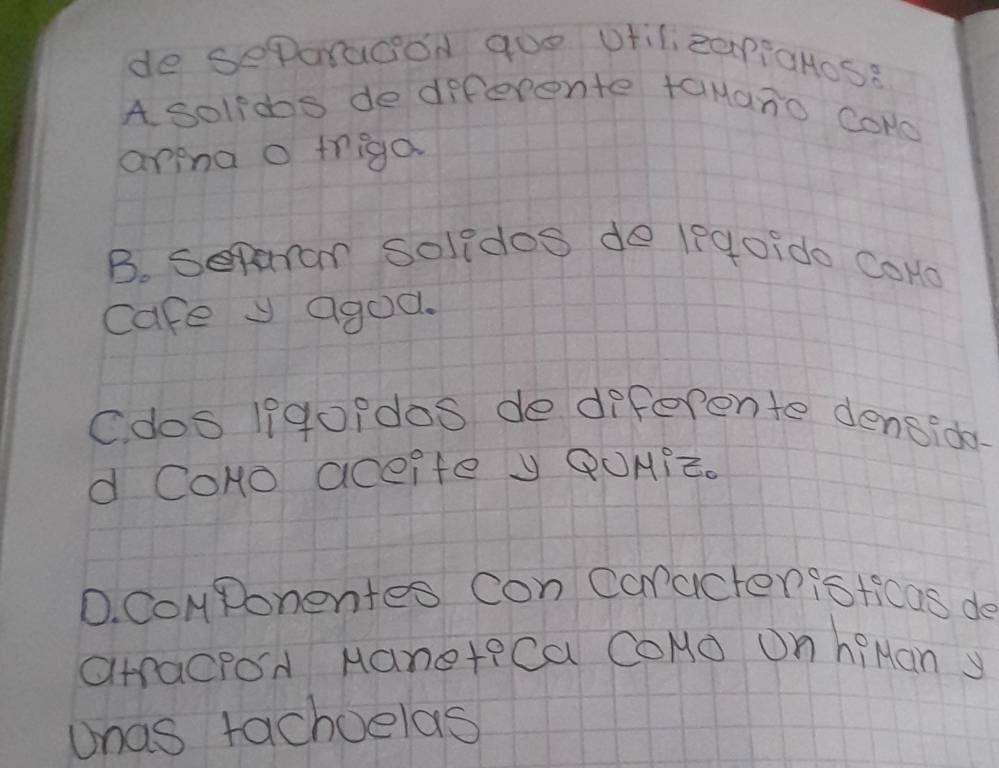 de separación que utilizariamos:
A solidos de diferente tamaño como
arina o triga
B. Separar solidos de liquido como
cafe y agua.
C. dos liquidos de diferente densida-
d como aceite y
D. componentes con caracteristicas de
atración manetica como un himan y
unas tachuelas